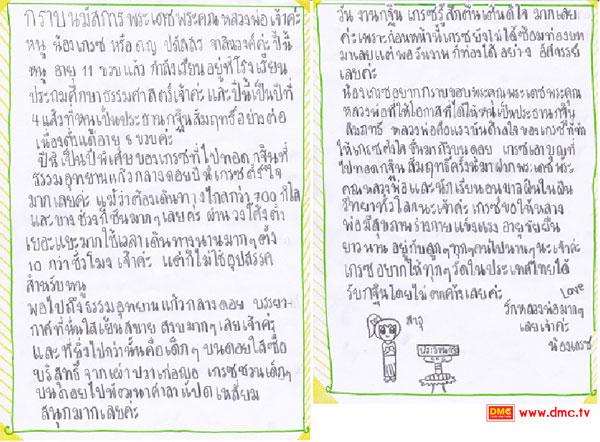 กราบนมัสการ พระเดชพระคุณ หลวงพ่อ เจ้าค่ะ
หนู น้องเกรซ หรือ ดญ ปีนี้
หนู อายุ 11 ขวบแล้ว กำลังเรียน อยู่ที่โรงเรียน
ประถมศึกษา ธรรมศาสตร์เจ้าค่ะ และปีนี้เป็นปีที่
4 แล้วที่หนูเป็นประธานกฐินสัมฤทธิ์อย่างต่อ
เนื่องตั้งแต่อายุ 8 ขวบค่ะ
ปีนี้เป็นปีพิเศษของเกรซที่ไปทอดกฐินที่
ธรรมอุทยานแก้วกลางดอยปีนี้เกรซดีใจ
มากเลยค่ะ แม้ว่าต้องเดินทางไกลกว่า 700 กิโล
และบางช่วงก็ชันมากๆเลยค่ะ ผ่านวงโค้งตั้ง
เยอะแยะมากใช้เวลาเดินทางนานมากๆตั้ง
10 กว่าชั่วโมง เจ้าค่ะ แต่ก็ไม่ใช่อุปสรรค
สำหรับหนู
พอไปถึงธรรมอุทยานแก้วกลางดอย บรรยา
กาศที่นั่นใสเย็นสบาย สวยมากๆเลยเจ้าค่ะ
และที่ยิ่งไปกว่านั้นคือเด็กๆ บนดอยใสซื่อ
บริสุทธิ์ จากเผ่าปวาเก่อญอ เกรซชวนเด็กๆ
บนดอยไปพัฒนาศาลาแปดเหลี่ยม
สนุกมากเลยค่ะ
วันงานกฐิน เกรซรู้สึกตื่นเต้นดีใจ มากเลย
ค่ะเพราะก่อนหน้านี้เกรซยังไม่ได้ซ้อมท่องบท
มาเลย แต่พอวันงานก็ท่องได้อย่าง อัศจรรย์
เลยค่ะ
น้องเกรซอยากกราบขอบพระคุณพระเดชพระคุณ
หลวงพ่อที่ให้โอกาสที่ได้ให้หนูเป็นประธานกฐิน
สัมฤทธิ์ หลวงพ่อคือแรงบันดาลใจของเกรซที่ทำ
ให้เกรซตั้งใจขึ้นมากับบนดอย เกรซเอาบุญที่
ไปทอดกฐินสัมฤทธิ์ครั้งนี้มาฝากพระเดชพระ
คุณหลวงพ่อและนักเรียนอนุบาลฝันในฝัน
วิทยาทั่วโลกนะเจ้าค่ะ เกรซขอให้หลวง
พ่อมีสุขภาพร่างกายแข็งแรง อายุขัยยืน
ยาวนาน อยู่กับลูกๆทุกๆคนไปนานๆนะเจ้าค่ะ
เกรซอยากให้ทุกๆวัดในประเทศไทยได้
รับกฐินโดยไม่ตกค้างเลยค่ะ
Love
รักหลวงพ่อมากๆ
เลยเจ้าค่ะ
น้องเกรซ
สาธุ
DMC www.dmc.tv